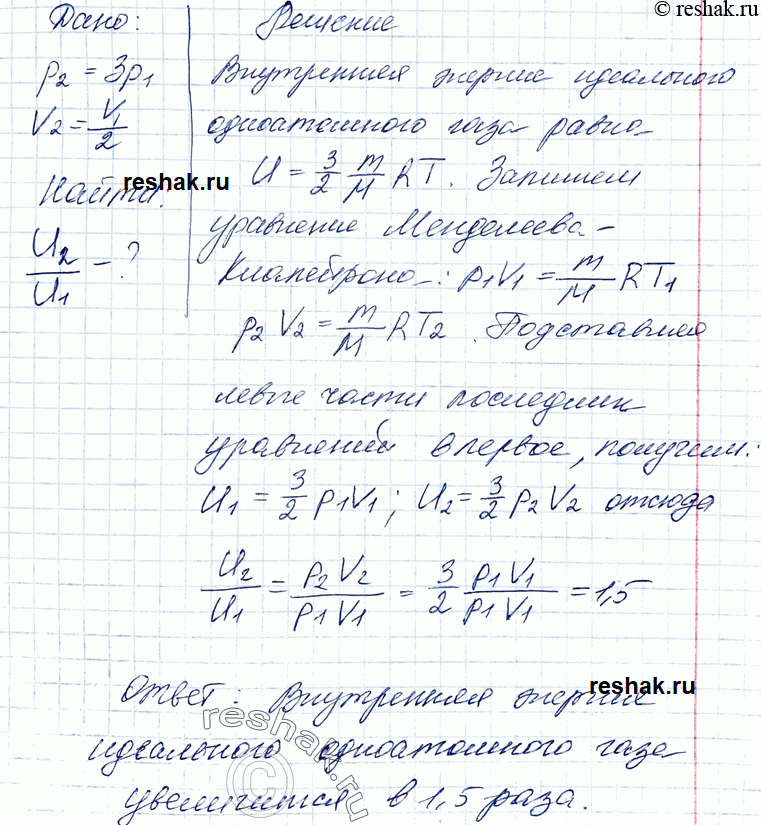 © reshak.ru
Дано:
p₂ = 3p₁
V₂ = V₁/2
Найти:
U₂/U₁ - ?
reshak.ru
Решение
Внутренняя энергия идеального
одноатомного газа равна
U = 3/2 m/M RT. Запишем
уравнение Менделеева-
Клапейрона: p₁V₁ = m/M RT₁
p₂V₂ = m/M RT₂. Подставляя
левые части последних
уравнений в первое, получим:
U₁ = 3/2 p₁V₁; U₂ = 3/2 p₂V₂ отсюда
U₂/U₁ = p₂V₂/p₁V₁ = 3/2 p₁V₁/p₁V₁ = 1,5
reshak.ru
Ответ: Внутренняя энергия
идеального одноатомного газа
увеличится в 1,5 раза.
reshak.ru
©